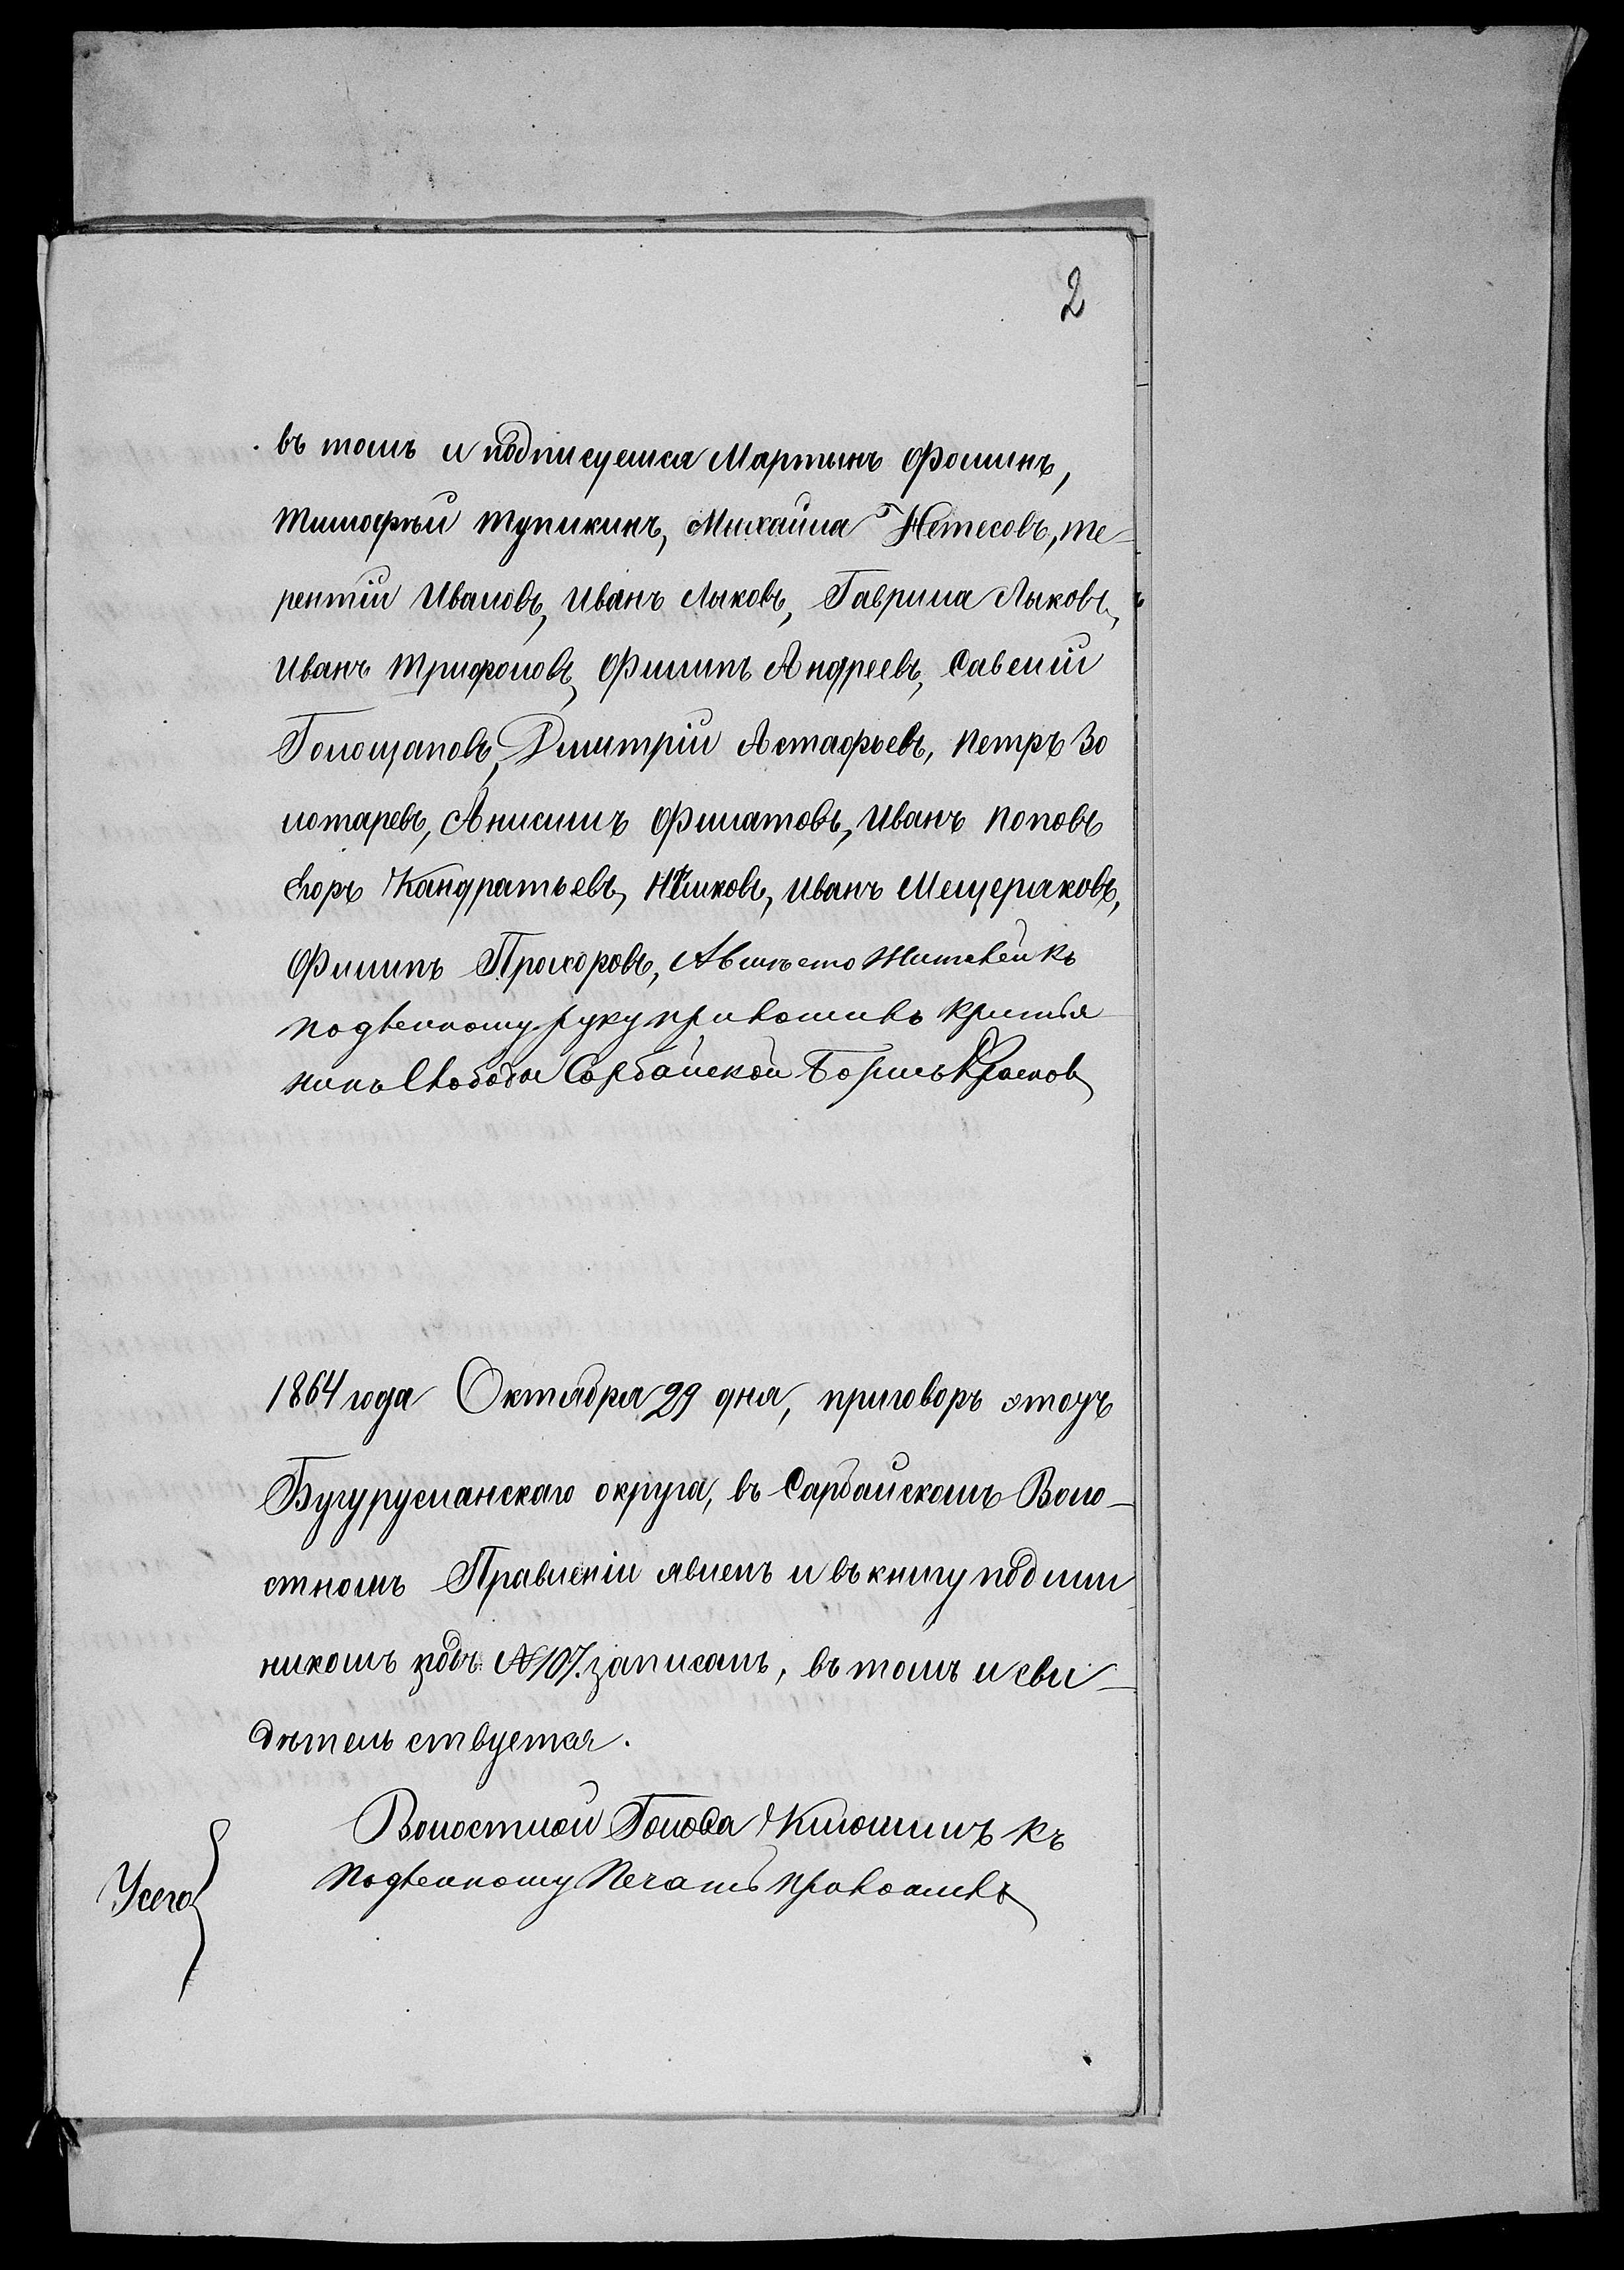 2
въ томъ и подписуемся Мартынъ Фоминъ,
Тимофѣй Тупикинъ, Михайла Нетесовъ, Те-
рентiй Ивановъ, Иванъ Лыковъ, Гаврила Лыковъ,
Иванъ Трифоновъ, Филипъ Андреевъ, Савелiй
Голощаповъ, Дмитрiй Астафьевъ, Петръ Зо
лотаревъ, Анисимъ Филатовъ, Иванъ Поповъ
Егоръ Кандратьевъ, Иванъ Мещеряковъ,
Филипъ Прохоровъ, къ
подленному руку приложилъ кристья
нинъ Слободы Сарбайской Борисъ
1864 года Октября 29 дня, приговоръ этотъ
Бугурусланскаго округа, въ Сарбайскомъ Воло-
стномъ Правленiи явленъ и въ книгу подлин
никомъ подъ №107. записанъ, въ томъ и сви-
дѣтельствуется.
Волостной Голова Клюшинъ къ
подленному Печать приложилъ